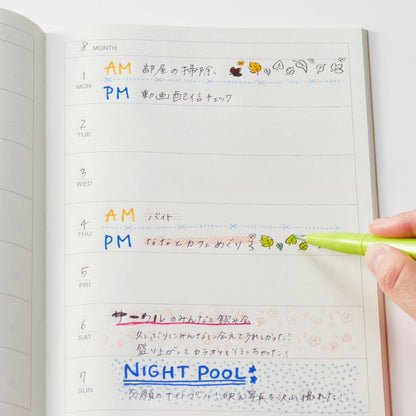 8 MONTH
1 AM 部屋の掃除、
MON PM 動画配信チェック
2
TUE
3
WED
4 AM バイト
THU PM ななとカフェめぐり
5
FRI
6 サークルのみんなと飲み会
SAT 久しぶりにみんなと会えてうれしかった!
盛り上がってカラオケも行っちゃった!
7 NIGHT POOL
SUN 念願のナイトプール!映え写真を沢山撮れた!